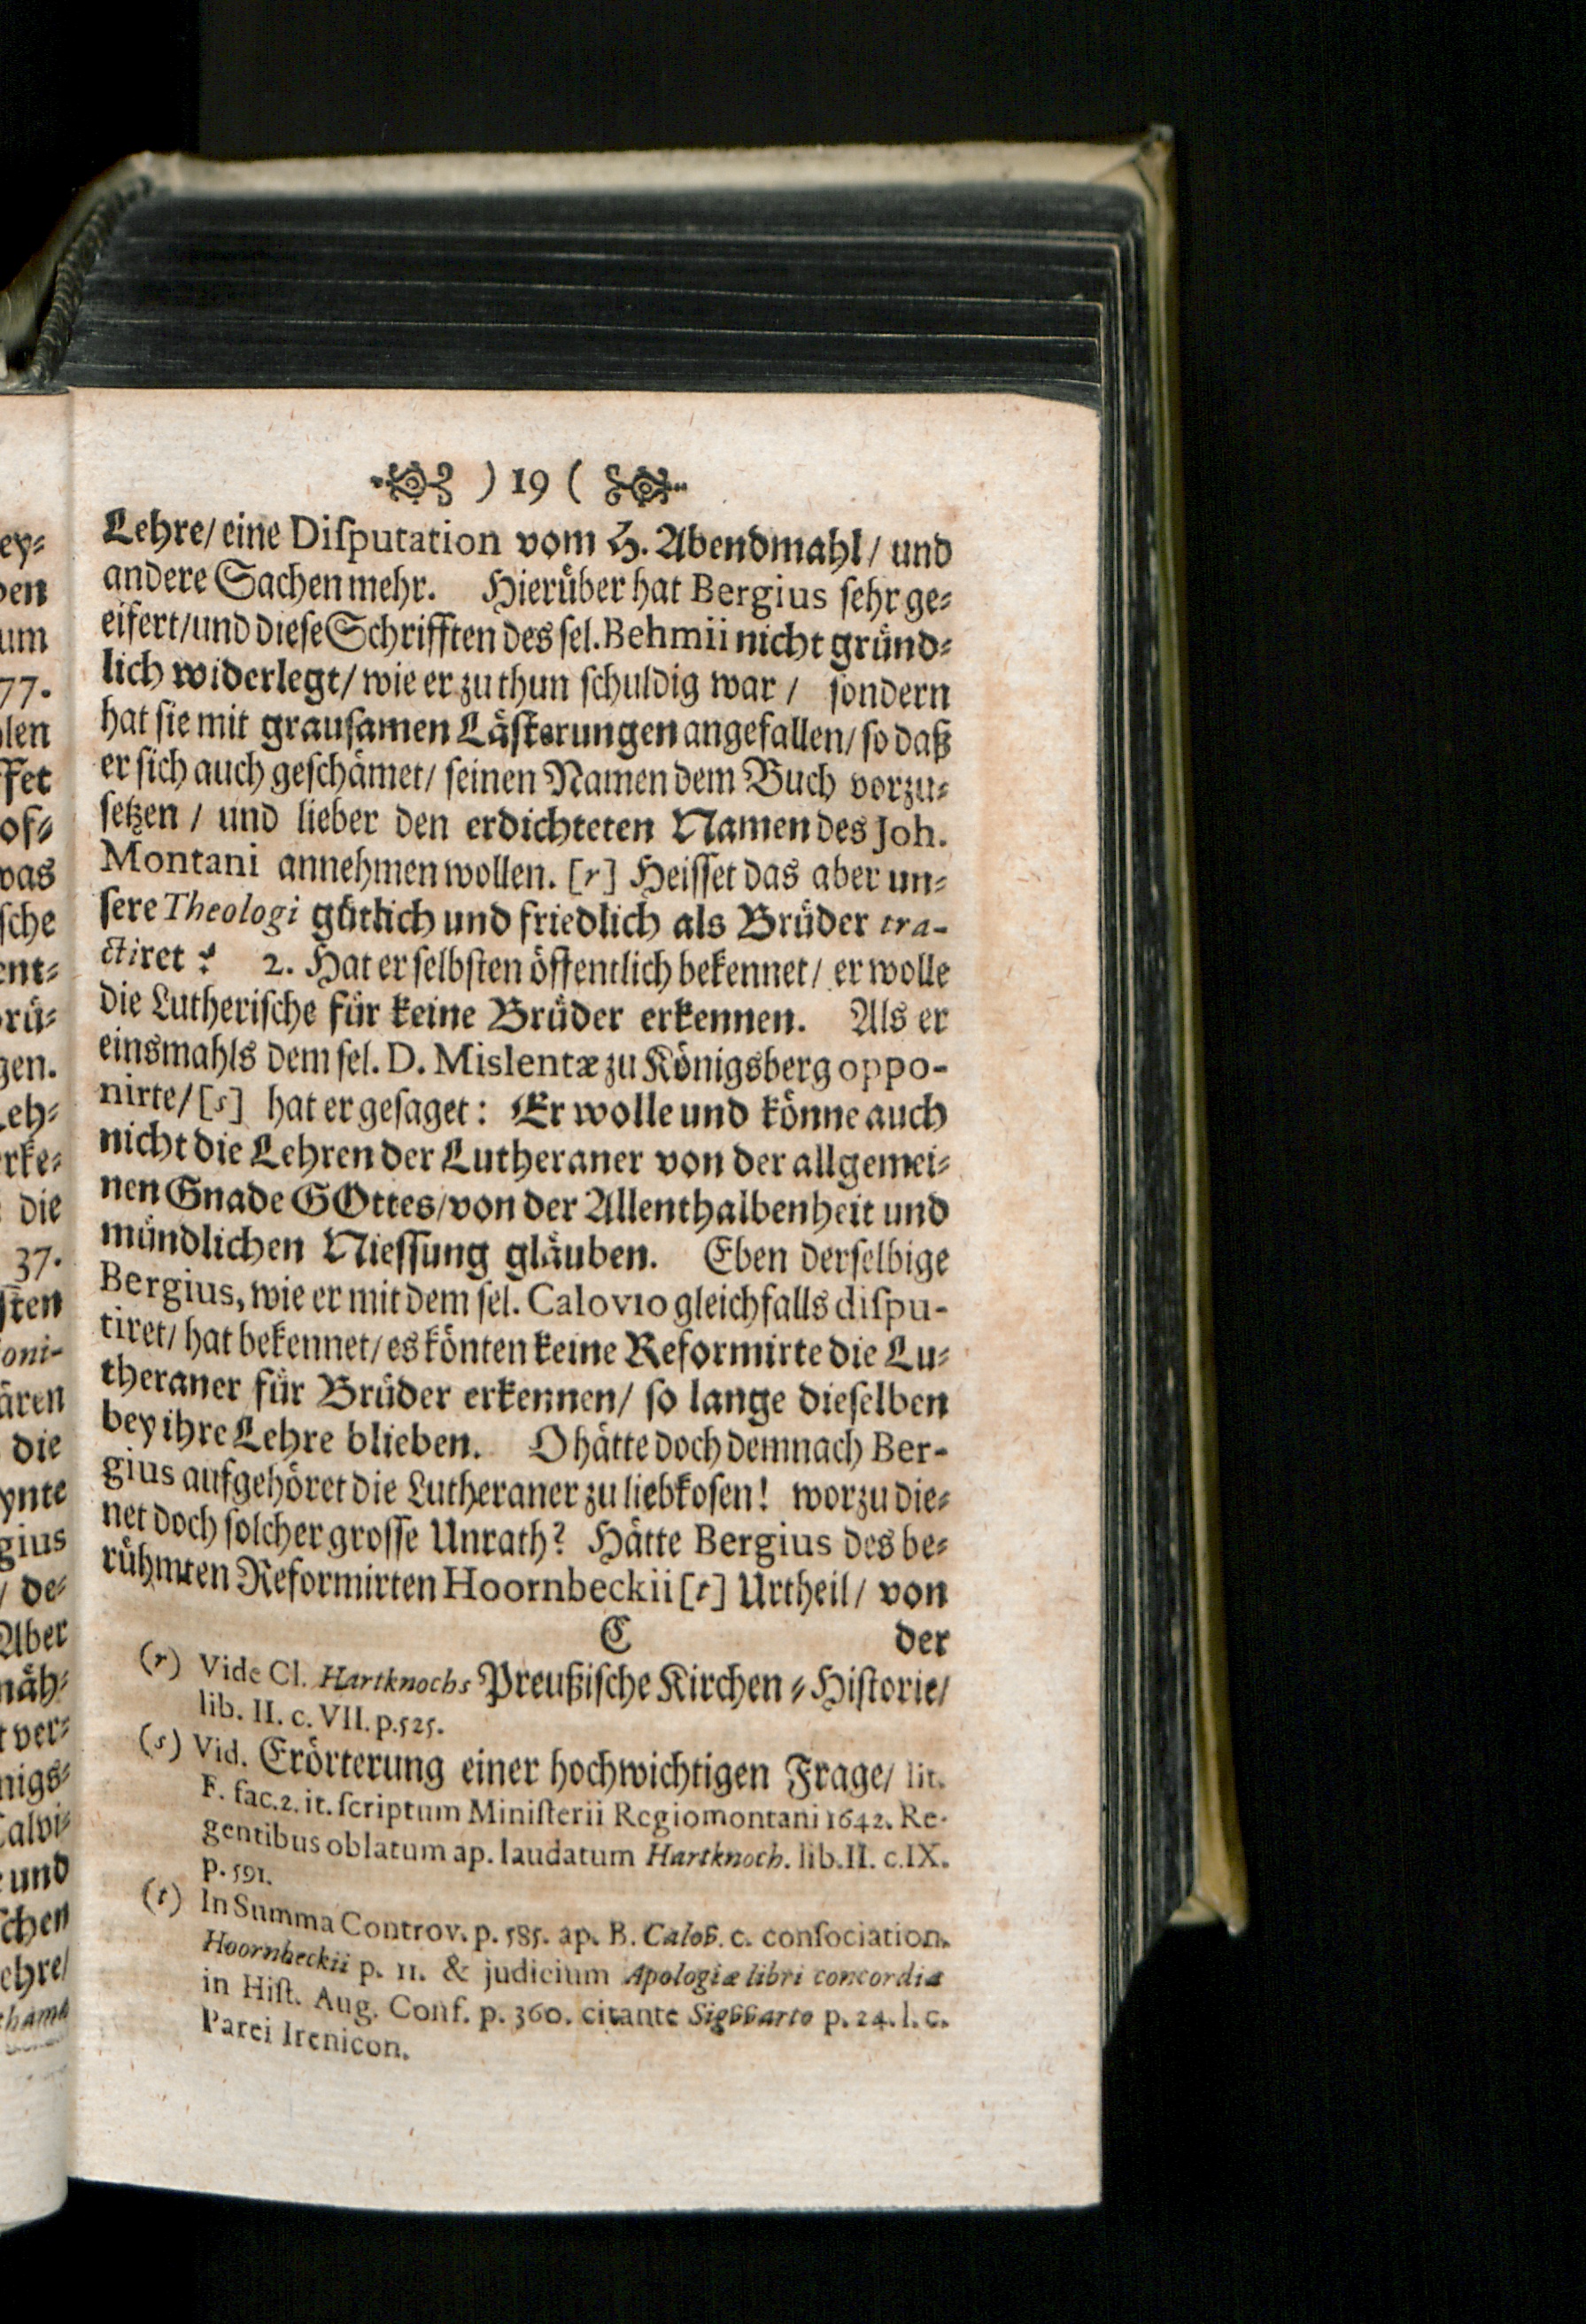 ) 19 (
Lehre/ eine Diſputation vom H. Abendmahl/ und
andere Sachen mehr. Hierüber hat Bergius ſehr ge⸗
eifert/ und dieſe Schrifften des ſel. Behmii nicht gründ⸗
lich widerlegt/ wie er zu thun ſchuldig war/ ſondern
hat ſie mit grauſamen Läſterungen angefallen/ ſo daß
er ſich auch geſchämet/ ſeinen Namen dem Buch vorzu⸗
ſetzen/ und lieber den erdichteten Namen des Joh.
Montani annehmen wollen. [r] Heiſſet das aber un⸗
ſere Theologi gütlich und friedlich als Brüder tra-
ctiret? 2. Hat er ſelbſten öffentlich bekennet/ er wolle
die Lutheriſche für keine Brüder erkennen. Als er
einsmahls dem ſel. D. Mislentæ zu Königsberg oppo-
nirte/ [s] hat er geſaget: Er wolle und könne auch
nicht die Lehren der Lutheraner von der allgemei⸗
nen Gnade GOttes/ von der Allenthalbenheit und
mündlichen Nieſſung gläuben. Eben derſelbige
Bergius, wie er mit dem ſel. Calovio gleichfalls diſpu-
tiret/ hat bekennet/ es könten keine Reformirte die Lu⸗
theraner für Brüder erkennen/ ſo lange dieſelben
bey ihre Lehre blieben. O hätte doch demnach Ber-
gius aufgehöret die Lutheraner zu liebkoſen! worzu die⸗
net doch ſolcher groſſe Unrath? Hätte Bergius des be⸗
rühmten Reformirten Hoornbeckii [t] Urtheil/ von
C der
(r) Vide Cl. Hartknochs Preußiſche Kirchen⸗Hiſtorie/
lib. II. c. VII. p. 525.
(s) Vid. Erörterung einer hochwichtigen Frage/ lit.
F. fac. 2. it. ſcriptum Miniſterii Regiomontani 1642. Re-
gentibus oblatum ap. laudatum Hartknoch. lib. II. c. IX.
p. 591.
(t) In Summa Controv. p. 585. ap. B. Calov. c. conſociation.
Hoornbeckii p. 11. & judicium Apologiæ libri concordiæ
in Hiſt. Aug. Conf. p. 360. citante Sigwarto p. 24. l. c.
Parei Irenicon.